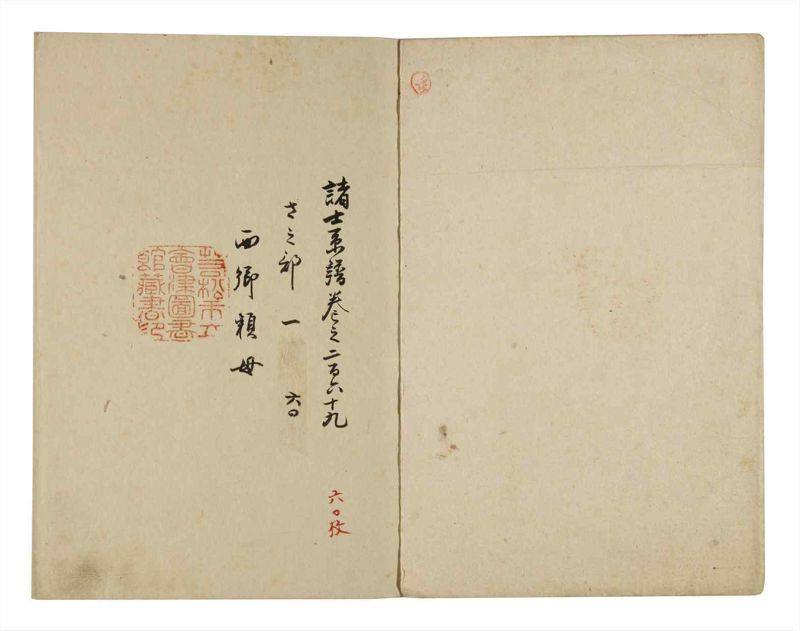 諸士系譜巻之二百六十九
さ之部 一 六〇
西郷頼母
六〇枚
若松市立
會津圖書
館藏書印